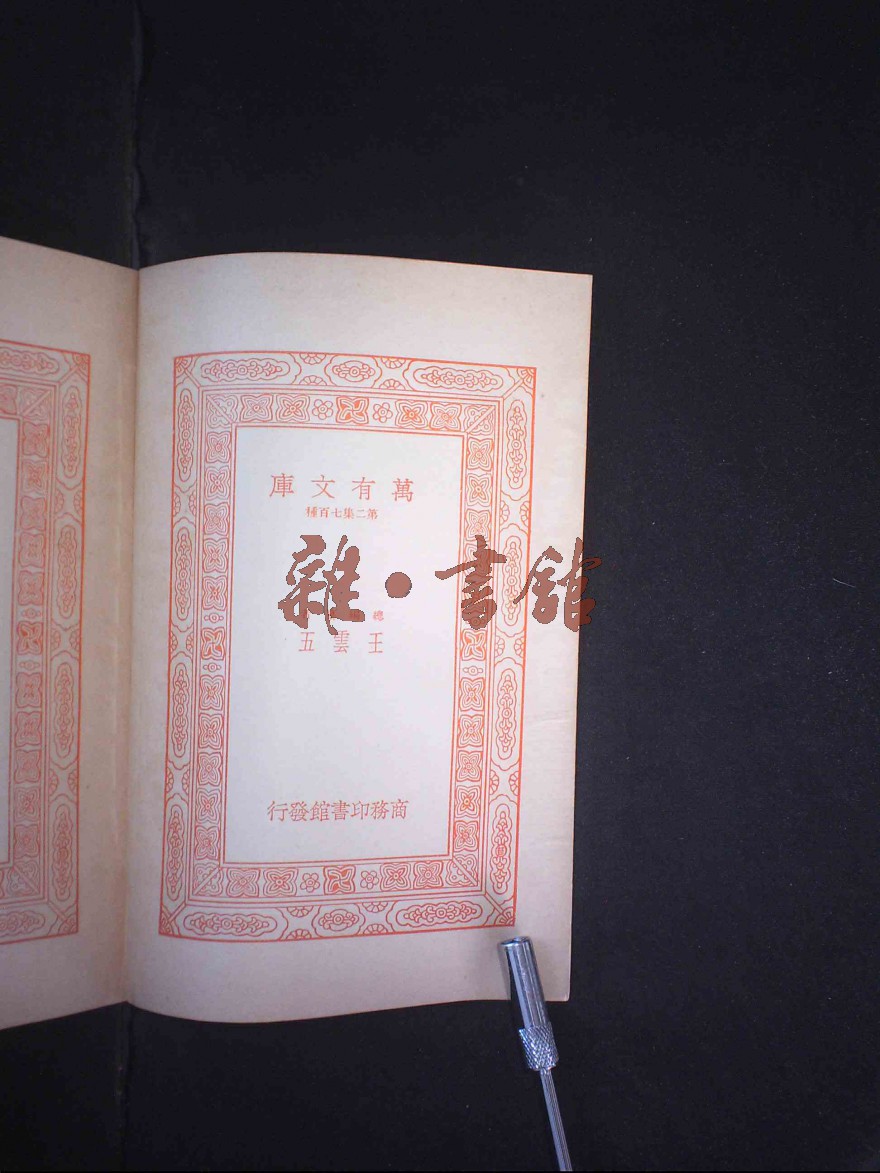 萬有文庫
第二集七百種
雜·書館
總
王雲五
商務印書館發行